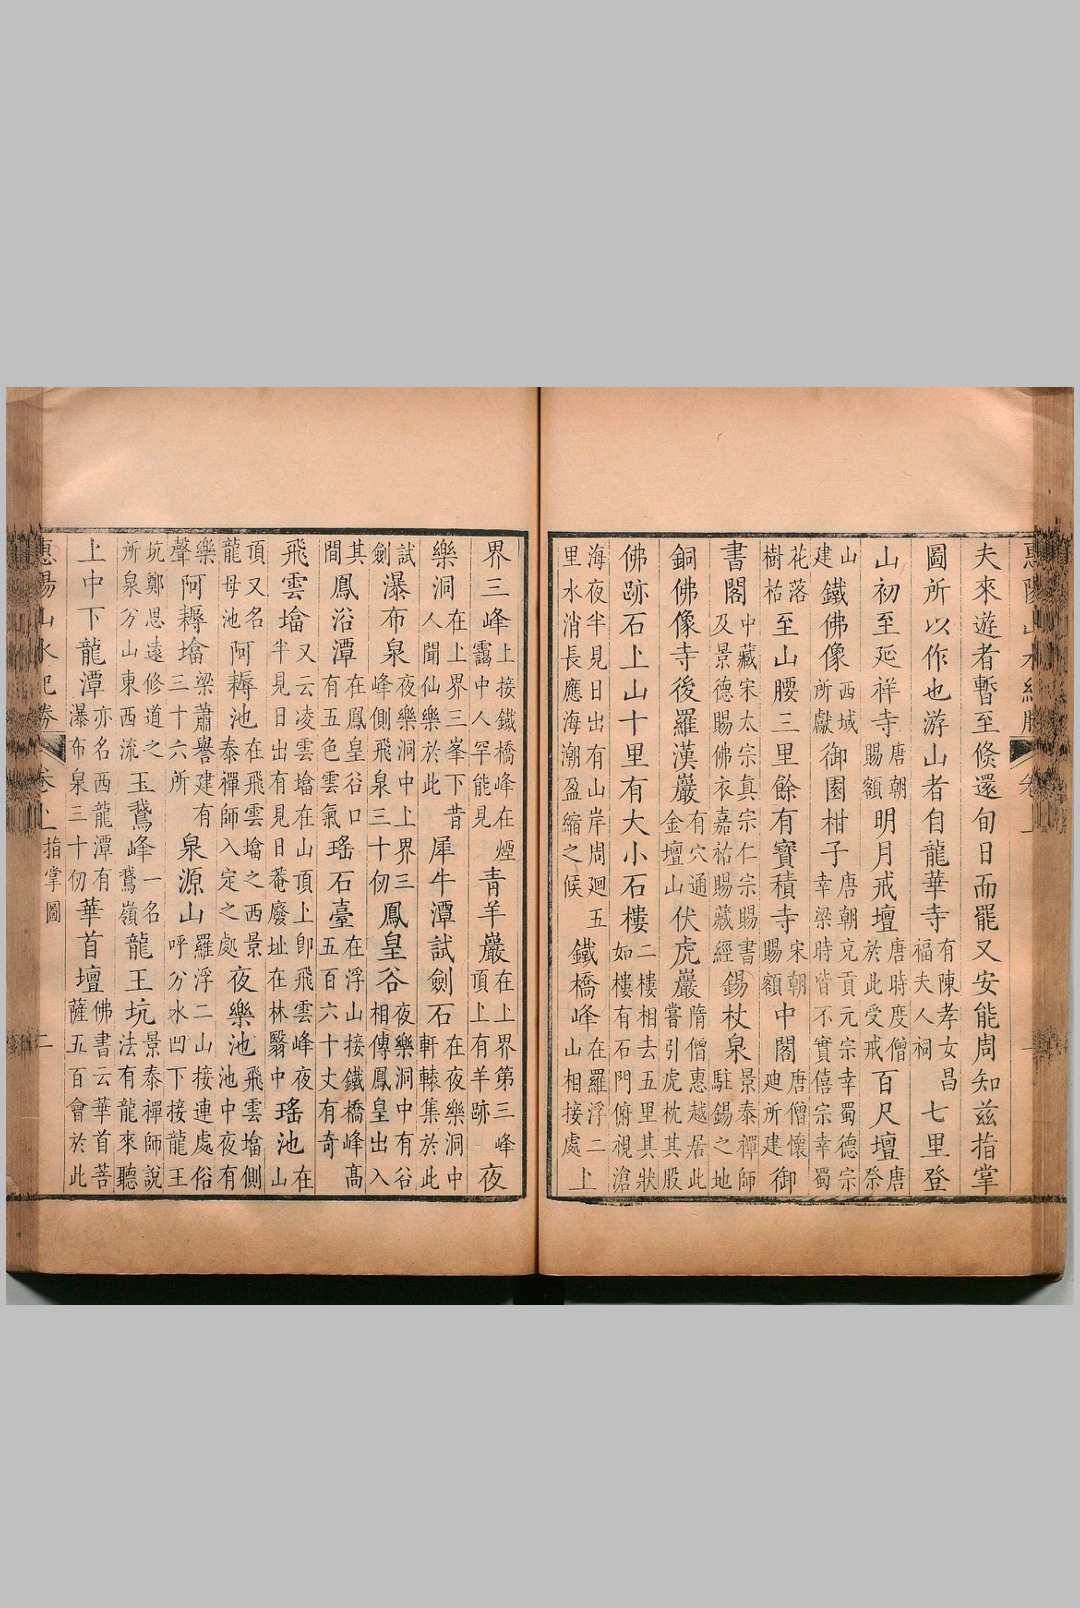 惠陽山水紀勝 卷上 一
夫來遊者暫至倐還旬日而罷又安能周知茲指掌
圖所以作也游山者自龍華寺有陳孝女昌福夫人祠七里登
山初至延祥寺唐朝賜額明月戒壇唐時度僧於此受戒百尺壇唐祭
山建鐵佛像西域所獻御園柑子唐朝充貢元宗幸蜀德宗幸梁時皆不實僖宗幸蜀
花落樹枯至山腰三里餘有寶積寺宋朝賜額中閣唐僧懷迪所建御
書閣中藏宋太宗真宗仁宗賜書及景德賜佛衣嘉祐賜藏經錫杖泉景泰禪師駐錫之地
銅佛像寺後羅漢巖有穴通金壇山伏虎巖隋僧惠越居此嘗引虎枕其股
佛跡石上山十里有大小石樓二樓相去五里其狀如樓有石門俯視滄
海夜半見日出有山岸周廻五里水消長應海潮盈縮之候鐵橋峰在羅浮二山相接處上
界三峰上接鐵橋峰在煙靄中人罕能見青羊巖在上界第三峰頂上有羊跡夜
樂洞在上界三峯下昔人聞仙樂於此犀牛潭試劍石在夜樂洞中軒轅集於此
試劍瀑布泉夜樂洞中上界三峰側飛泉三十仞鳳皇谷夜樂洞中有谷相傳鳳皇出入
其間鳳浴潭在鳳皇谷口有五色雲氣瑤石臺在浮山接鐵橋峰高五百六十丈有奇
飛雲㙮又云凌雲㙮在山頂上卽飛雲峰夜半見日出有見日菴廢址在林翳中瑤池在山
頂又名龍母池阿耨池在飛雲㙮之西景泰禪師入定之處夜樂池飛雲㙮側池中夜有
樂聲阿耨㙮梁蕭譽建有三十六所泉源山羅浮二山接連處俗呼分水凹下接龍王
坑鄭思遠修道之所泉分山東西流玉鵞峰一名鵞嶺龍王坑景泰禪師說法有龍來聽
上中下龍潭亦名西龍潭有瀑布泉三十仞華首壇佛書云華首菩薩五百會於此
惠陽山水紀勝 卷上 指掌圖 二